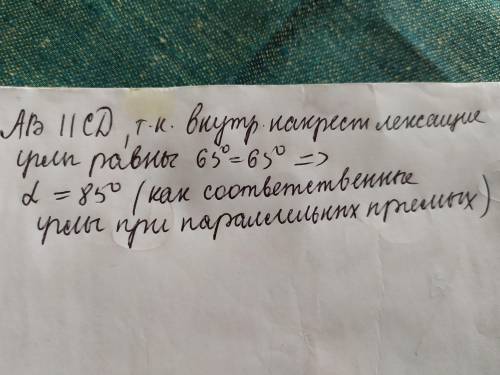 AB || CD, т.к. внутр. накрест лежащие
углы равны 65° = 65° =>
α = 85° (как соответственные
углы при параллельных прямых)